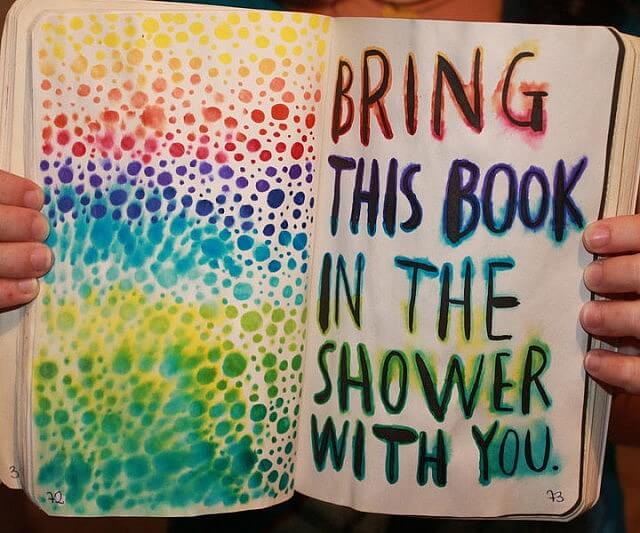 BRING
THIS BOOK
IN THE
SHOWER
WITH YOU.
3
72
73